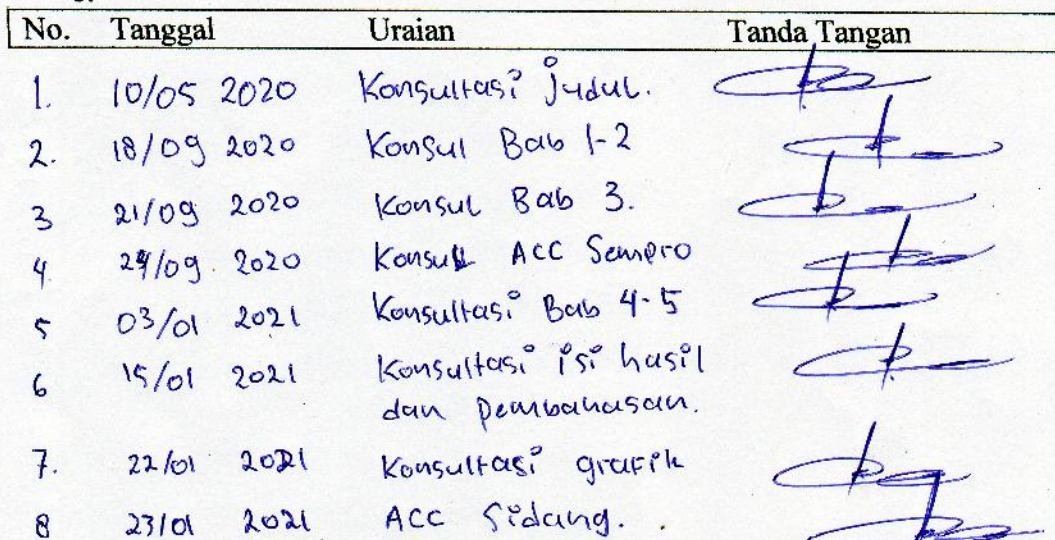 No. Tanggal Uraian Tanda Tangan
1. 10/05 2020 Konsultasi Judul.
2. 18/09 2020 Konsul Bab 1-2
3 21/09 2020 Konsul Bab 3.
4 24/09. 2020 Konsul ACC Sempro
5 03/01 2021 Konsultasi Bab 4-5
6 15/01 2021 Konsultasi isi hasil
dan pembahasan.
7. 22/01 2021 Konsultasi grafik
8 23/01 2021 ACC Sidang.